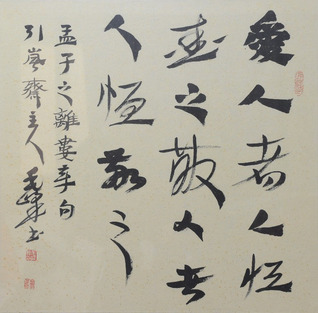 愛人者人恒
愛之敬人者
人恒敬之
孟子之離婁章句
主人